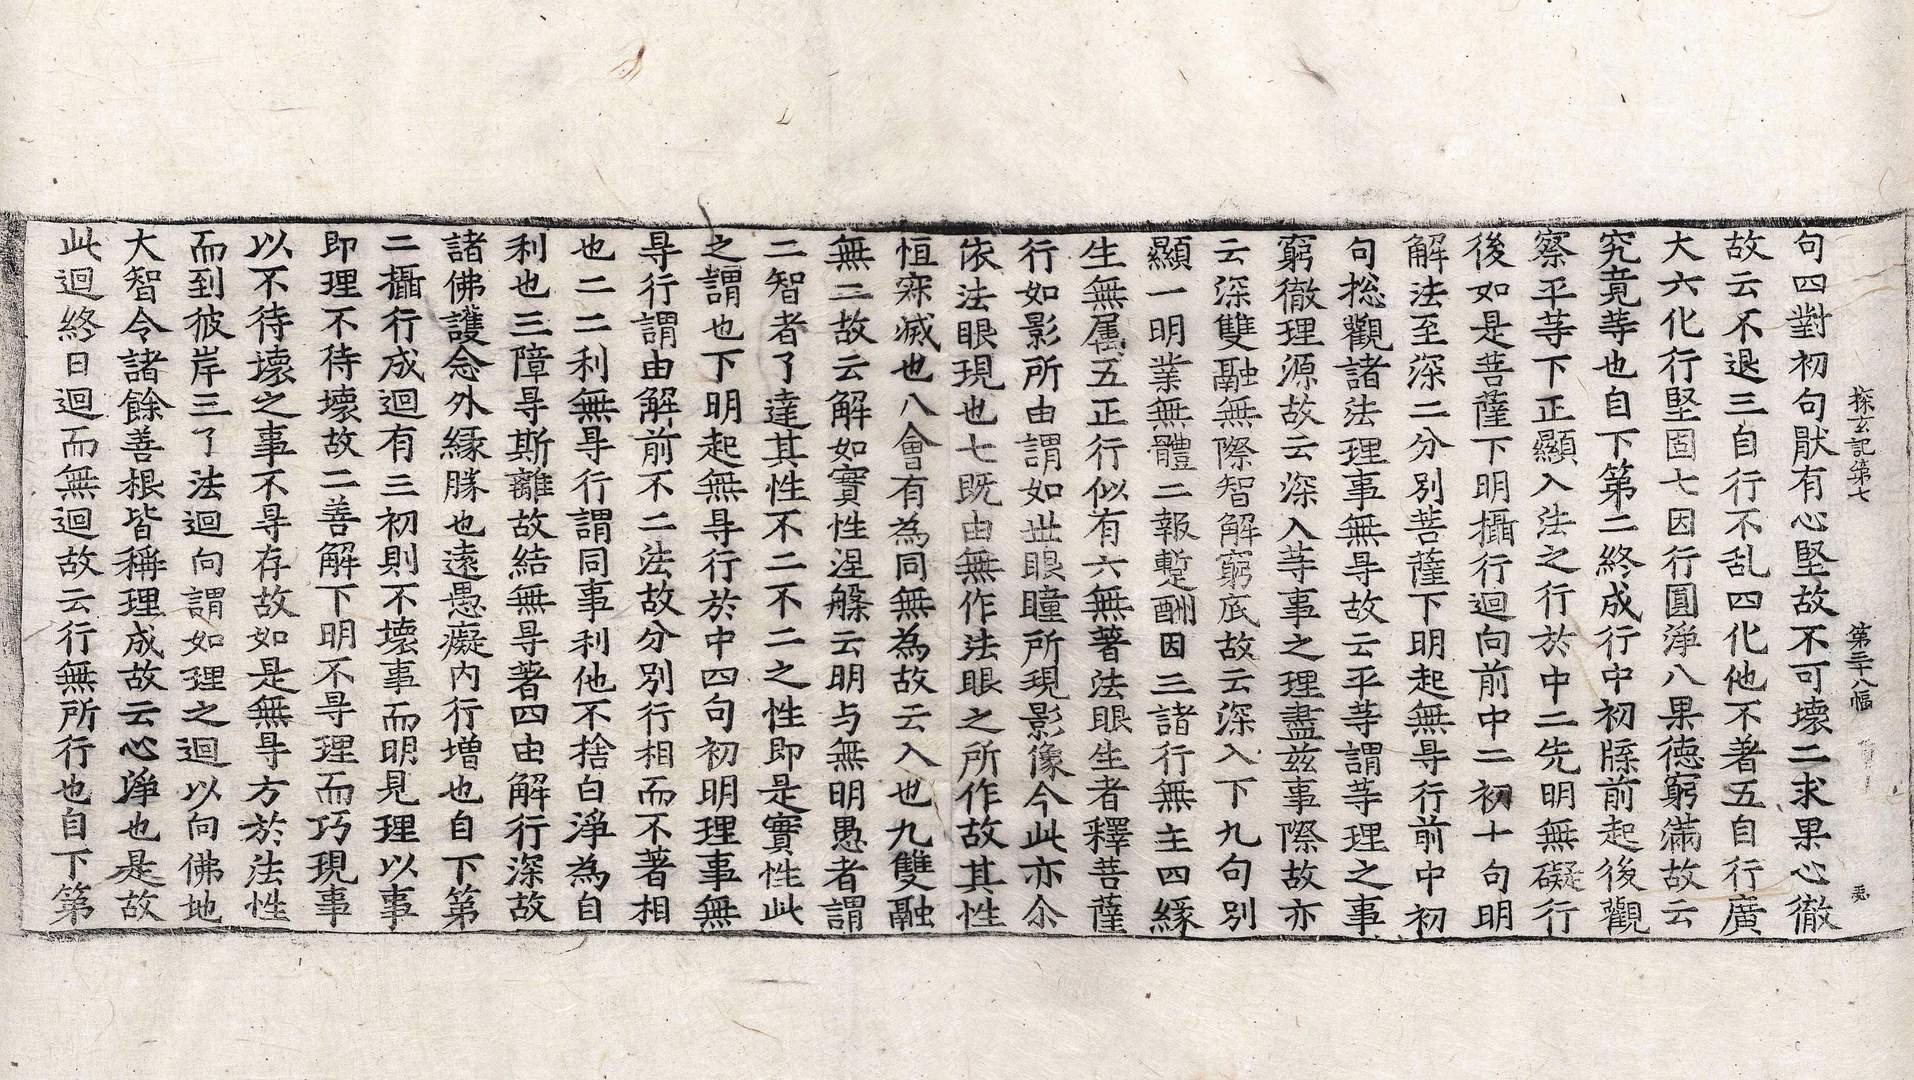 探玄記第七　第三十八幅
句四對初句猒有心堅故不可壞二求果心徹
故云不退三自行不乱四化他不著五自行廣
大六化行堅固七因行圓淨八果德窮滿故云
究竟等也自下第二終成行中初牒前起後觀
察平等下正顯入法之行於中二先明無礙行
後如是菩薩下明攝行迴向前中二初十句明
解法至深二分別菩薩下明起無㝵行前中初
句捴觀諸法理事無㝵故云平等謂等理之事
窮徹理源故云深入等事之理盡兹事際故亦
云深雙融無際智解窮底故云深入下九句別
顯一明業無體二報蹔酬因三諸行無主四緣
生無属五正行似有六無著法眼生者釋菩薩
行如影所由謂如世眼瞳所現影像今此亦尒
依法眼現也七既由無作法眼之所作故其性
恒寂滅也八會有為同無為故云入也九雙融
無二故云解如實性涅槃云明与無明愚者謂
二智者了達其性不二不二之性即是實性此
之謂也下明起無㝵行於中四句初明理事無
㝵行謂由解前不二法故分別行相而不著相
也二二利無㝵行謂同事利他不捨白淨為自
利也三障㝵斯離故結無㝵著四由解行深故
諸佛護念外緣勝也遠愚癡內行增也自下第
二攝行成迴有三初則不壞事而明見理以事
即理不待壞故二善解下明不㝵理而巧現事
以不待壞之事不㝵存故如是無㝵方於法性
而到彼岸三了法迴向謂如理之迴以向佛地
大智令諸餘善根皆稱理成故云心淨也是故
此迴終日迴而無迴故云行無所行也自下第